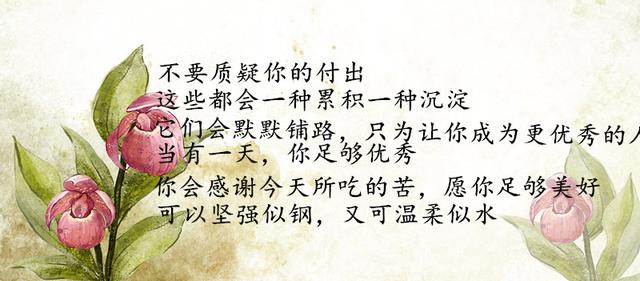 不要质疑你的付出
这些都会一种累积一种沉淀
它们会默默铺路，只为让你成为更优秀的人
当有一天，你足够优秀
你会感谢今天所吃的苦，愿你足够美好
可以坚强似钢，又可温柔似水